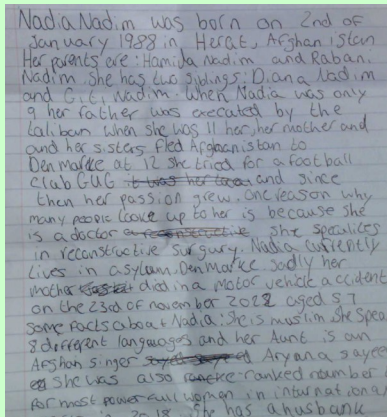 Nadia Nadim was born on 2nd of
January 1988 in, Herat, Afghanistan
Her parents are: Hamida Nadim and Rabani
Nadim. She has two siblings: Diana Nadim
and Giti Nadim. When Nadia was only
9 her father was execated by the
taliban when she was 11 her, her mother and
and her sisters fled Afganistan to
Denmarke at 12 she tried for a football
club GUG it was her and since
then her passion grew. One reason why
many people look up to her is because she
is a doctor she specilices
in reconstructive surgury. Nadia currently
lives in asylum, Denmarke. Sadly her
mother died in a motor vehicle accident
on the 23rd of november 2022 aged 57
some facts about Nadia: She is muslim she spea
8 different languages and her Aunt is an
Afghan singer Aryana sayee
ed she was also ranked number
for most powerfull women in international
in 2018. she has a husbank